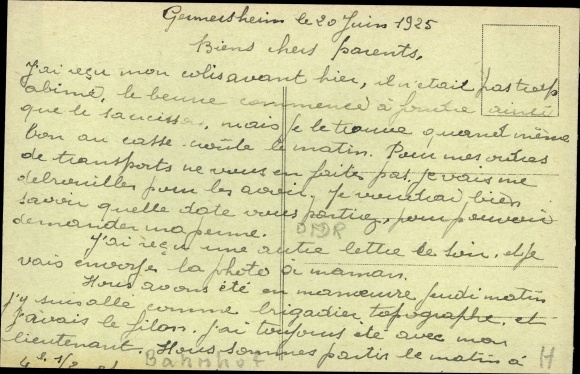 Germersheim le 20 Juin 1925
Biens chers parents,
J'ai reçu mon colis avant hier, il n'était pas trop
abimé, le beurre commence à fondre ainsi
que le saucisson, mais je le trouve quand même
bon au casse-croûte le matin. Pour mes ordres
de transports ne vous en faites pas, je vais me
débrouiller pour les avoir, je voudrai bien
savoir quelle date vous partirez, pour pouvoir
demander ma perme.
J'ai reçu une autre lettre ce soir, et je
vais envoyer la photo à maman.
Nous avons été en manœuvre jeudi matin
j'y suis allé comme brigadier topographe, et
j'avais le filon, j'ai toujours été avec mon
lieutenant. Nous sommes partis le matin à
4h 1/2 et
DMDR
Bahnhof
H